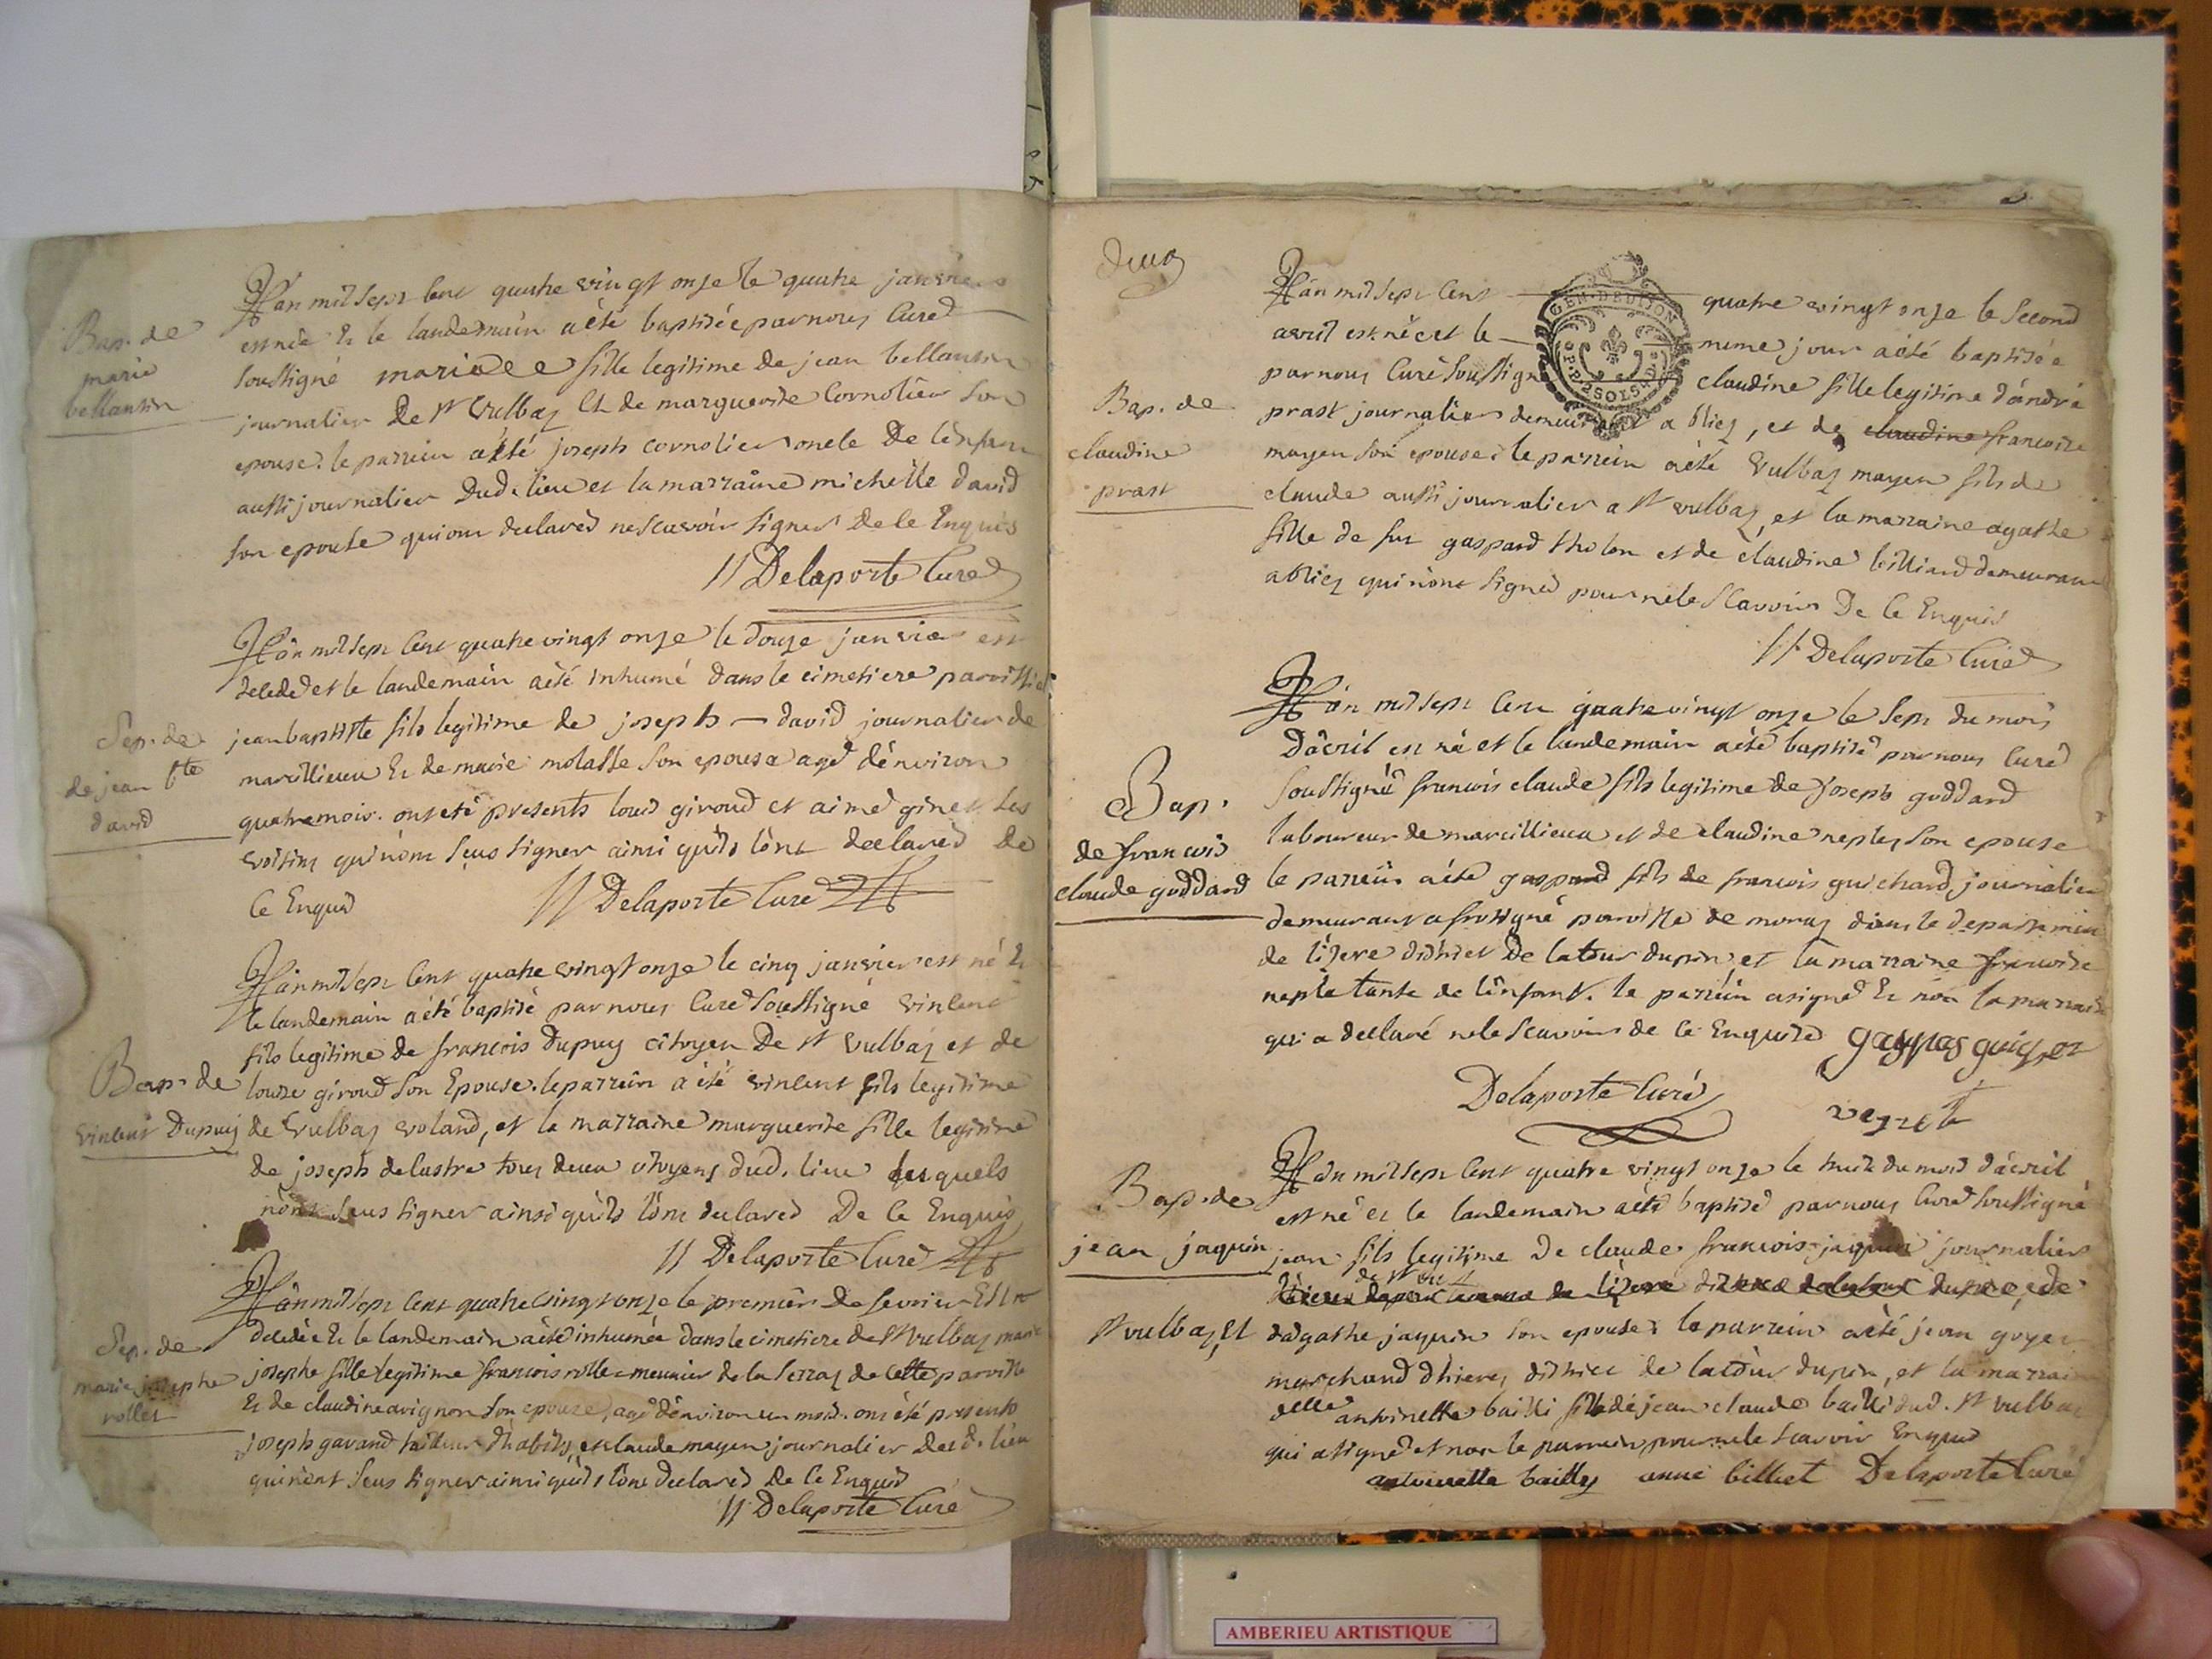 Bap. de
marie
bellantin
L'an mil sept cent quatre vingt onze le quatre janvier
est née et le landemain a été baptisée par nous Curé
soussigné marie fille legitime de jean bellantin
journalier De st Vulbaz et de marguerite Cornolier son
epouse. le parrein a été joseph cornolier oncle De l'enfant
aussi journalier dud. lieu et la marraine michelle david
son epouse qui ont declaréd ne scavoir signer de ce Enquis
Delaporte Curé
Sep. de
de jean bte
david
L'an mil sept cent quatre vingt onze le douze janvier est
decedé et le landemain a été inhumé dans le cimetiere parroissial
jean baptiste fils legitime de joseph david journalier de
marcillieux et de marie molasse son epouse agé d'environ
quatre mois. ont eté presents louis giroud et aimé ginet ses
voisins qui n'ont sçus signer ainsi qu'ils l'ont declaréd de
Ce Enquis Delaporte Curé
Bap. de
vincent Dupuy
L'an mil sept cent quatre vingt onze le cinq janvier est né et
le landemain a été baptisé par nous Curé soussigné vincent
fils legitime de francois Dupuy citoyen De st vulbaz et de
louise giroud son Epouse. le parrein a été vincent fils legitime
de Vulbaz voland, et la marraine marguerite fille legitime
de joseph delastre tous deux citoyens dud. lieu lesquels
n'ont sçus signer ainsi qu'ils l'ont declaréd De Ce Enquis
Delaporte Curé
Sep. de
marie josephe
rollet
L'an mil sept cent quatre vingt onze le premier de fevrier Est
decedée et le landemain a été inhumée dans le cimetiere de st vulbaz marie
josephe fille legitime francois rollet meunier de la serraz de cette parroisse
et de claudine avignon son epouse, agé d'environ un mois. ont été presents
joseph gavand tailleur d'habits, et claude mayen journalier dud. lieu
qui n'ont sçus signer ainsi qu'ils l'ont declaréd de Ce Enquis
Delaporte Curé
deux
GEN. DE DIJON
P.P. 2 SOLS
Bap. de
claudine
prast
L'an mil sept cent quatre vingt onze le second
avril est née et le meme jour a été baptisée
par nous Curé soussigné claudine fille legitime d'andré
prast journalier demeurant a bliez, et de claudine francoise
mayen son epouse. le parrein a été Vulbaz mayen fils de
claude aussi journalier a st vulbaz, et la marraine agathe
fille de feu gaspard tholon et de claudine billiard demeurant
a bliez qui n'ont signéd pour ne le scavoir De Ce Enquis
Delaporte Curé
Bap.
de francois
claude goddard
L'an mil sept cent quatre vingt onze le sept du mois
D'avril est né et le landemain a été baptisé par nous Curé
soussigné francois claude fils legitime de joseph goddard
laboureur de marcillieux et de claudine neples son epouse
le parrein a été gaspard fils de francois guichard, journalier
demeurant a parroisse de moraz dans le departement
de l'izere district De latour dupin et la marraine francoise
neple tante de l'enfant. le parrein a signé et non la marraine
qui a declaré ne le scavoir de Ce Enquise
Delaporte Curé
Bap. de
jean jaquin
L'an mil sept cent quatre vingt onze le huit du mois d'avril
est né et le landemain a été baptisé par nous Curé soussigné
jean fils legitime De claude francois jaquin journalier
de
st vulbaz, et d'agathe jaquin son epouse. le parrein a été jean goyet
marchand d'hieres district de latour dupin, et la marraine
delle antoinette bailli fille de jean claude bailli dud. st vulbaz
qui a signé et non le parrein pour ne le scavoir Enquis
antoinette bailly anne billiet Delaporte Curé
AMBERIEU ARTISTIQUE